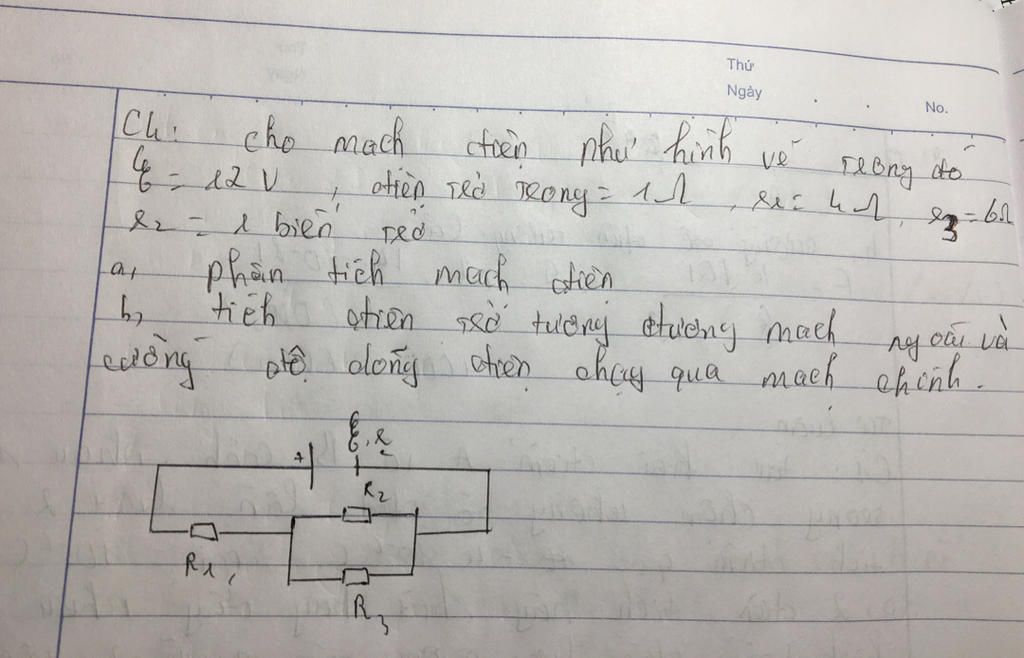 Thứ
Ngày
No.
C4: cho mạch điện như hình vẽ trong đó
ξ = 12 V, điện trở trong = 1 Ω, R1 = 4 Ω, R3 = 6Ω
R2 = 1 biến trở
a, phân tích mạch điện
b, tính điện trở tương đương mạch ngoài và
cường độ dòng điện chạy qua mạch chính.
+ ξ, r
R2
R1,
R3